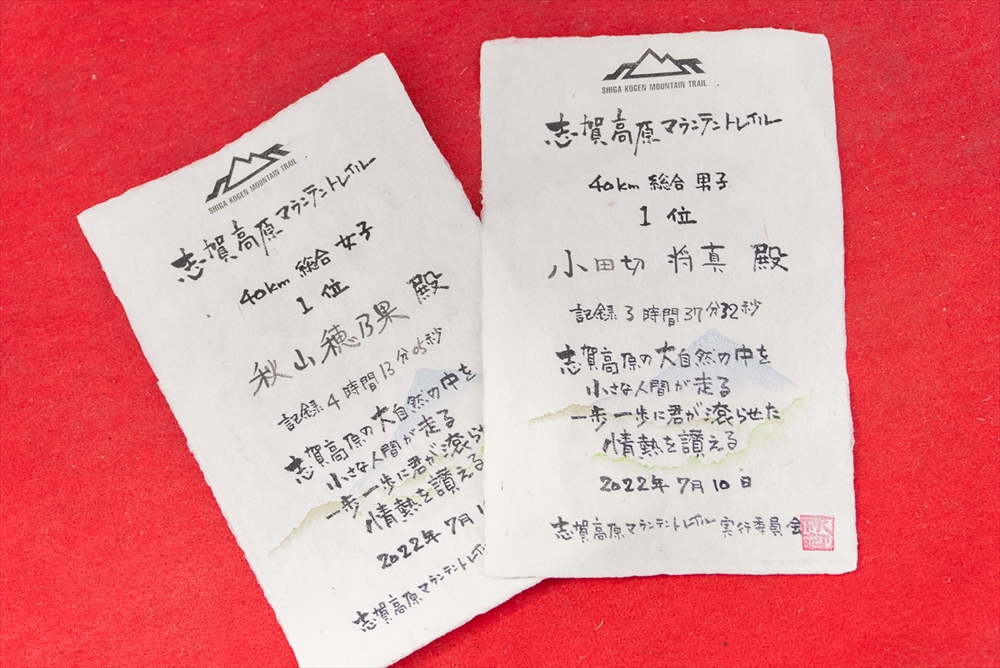 SHIGA KOGEN MOUNTAIN TRAIL
志賀高原マウンテントレイル
40km 総合 女子
1位
秋山穂乃果 殿
記録4時間13分05秒
志賀高原の大自然の中を
小さな人間が走る
一歩一歩に君が滾らせ
情熱を讃える
2022年7月1
志賀高原マウンテントレイル
SHIGA KOGEN MOUNTAIN TRAIL
志賀高原マウンテントレイル
40km 総合 男子
1位
小田切 将真 殿
記録3時間37分32秒
志賀高原の大自然の中を
小さな人間が走る
一歩一歩に君が滾らせた
情熱を讃える
2022年7月10日
志賀高原マウンテントレイル実行委員会